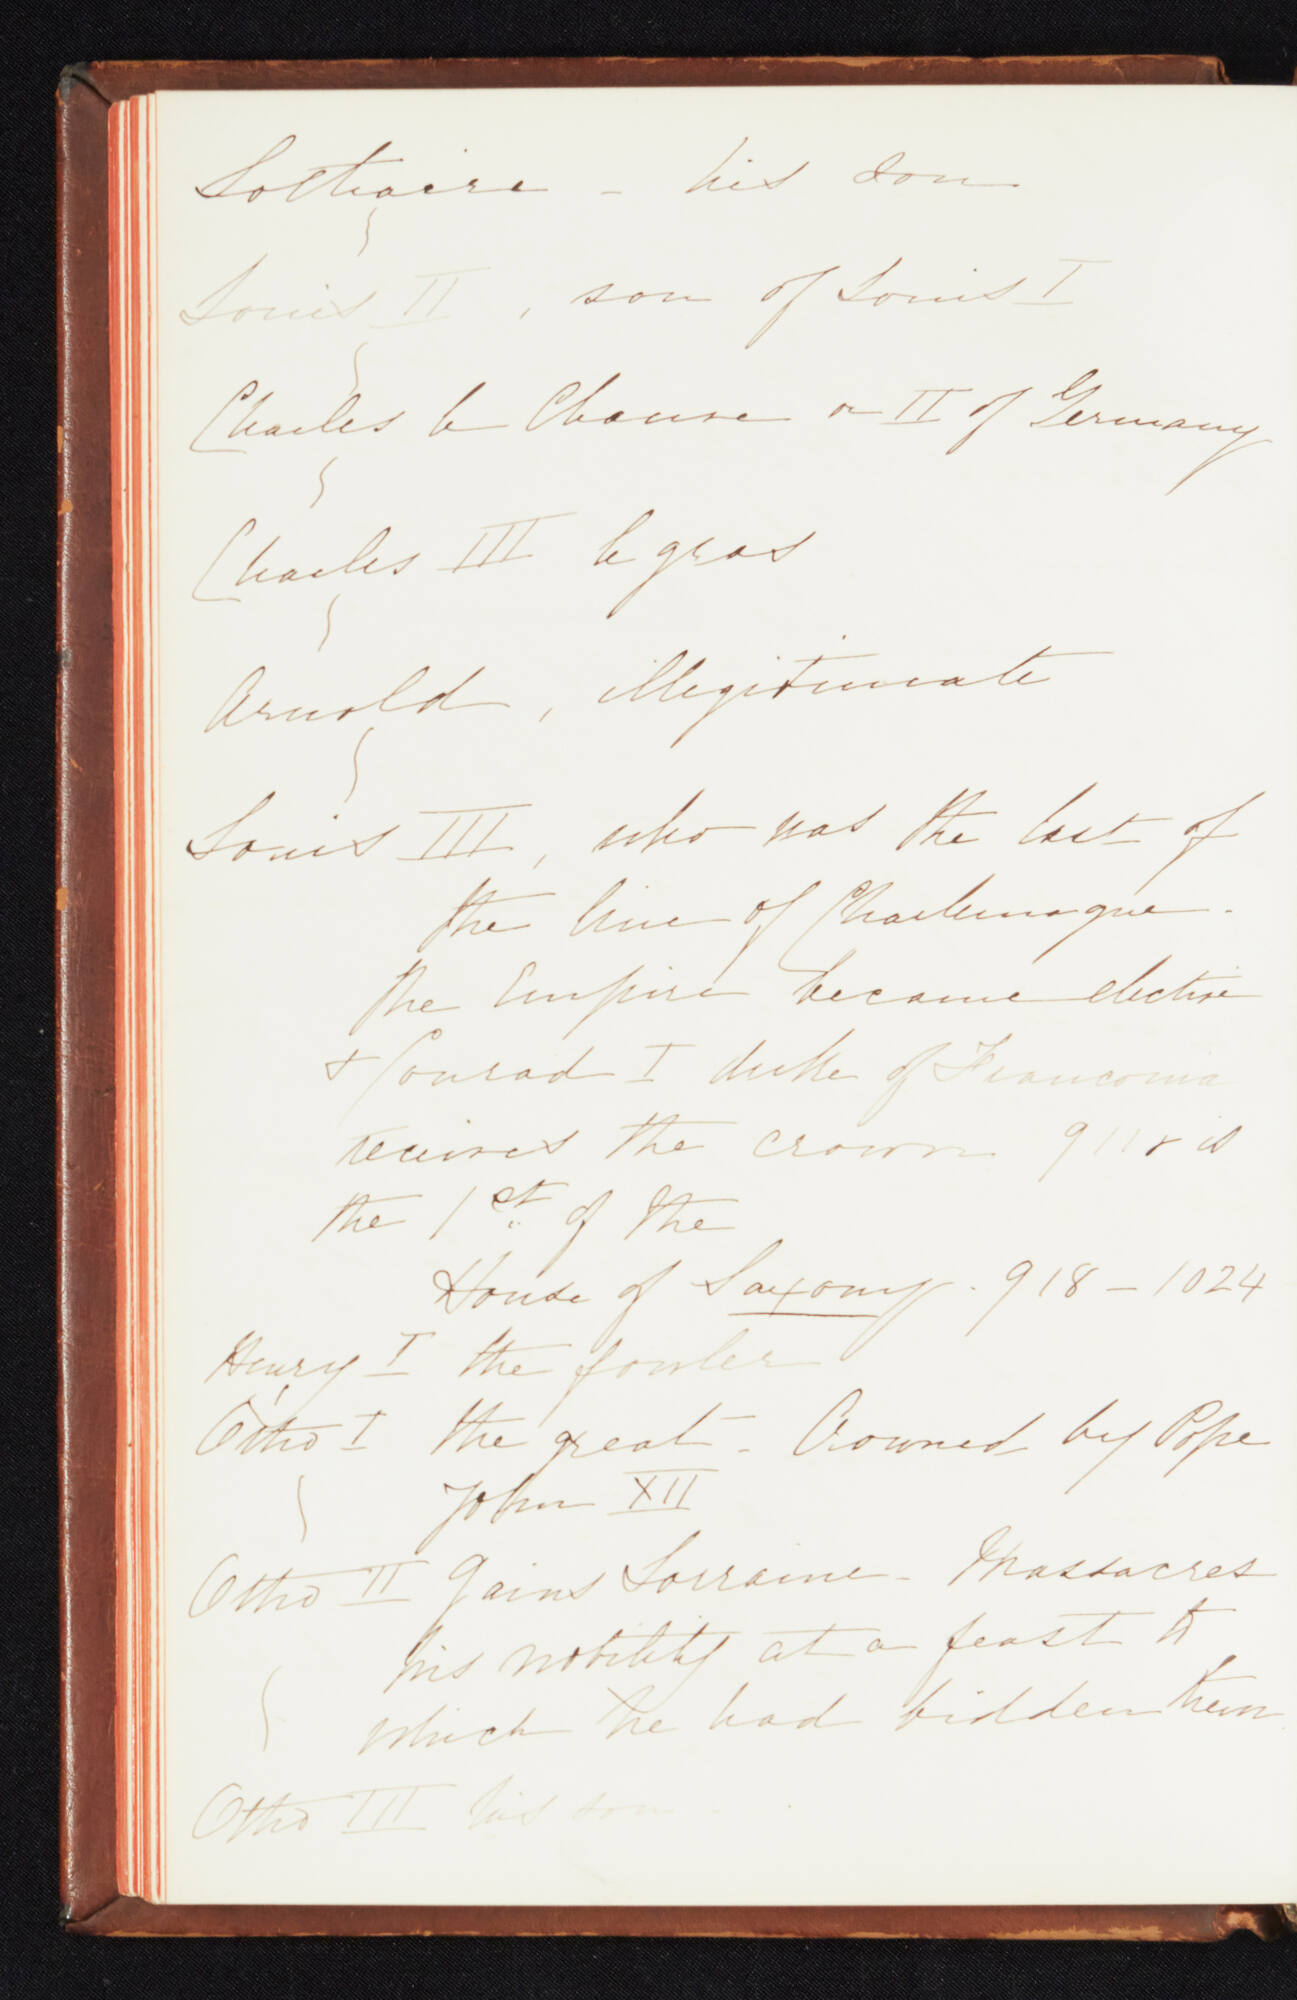 Lothaire - his son
Louis II, son of Louis I
Charles le Chauve or II of Germany
Charles III le gras
Arnold, illegitimate
Louis III, who was the last of
the line of Charlemagne.
the Empire became elective
& Conrad I duke of Franconia
receives the crown 911 & is
the 1st of the
House of Saxony. 918 - 1024
Henry I the fowler
Otho I the great - Crowned by Pope
John XII
Otho II gains Lorraine - Massacres
his nobility at a feast to
which he had bidden them
Otho III his son -